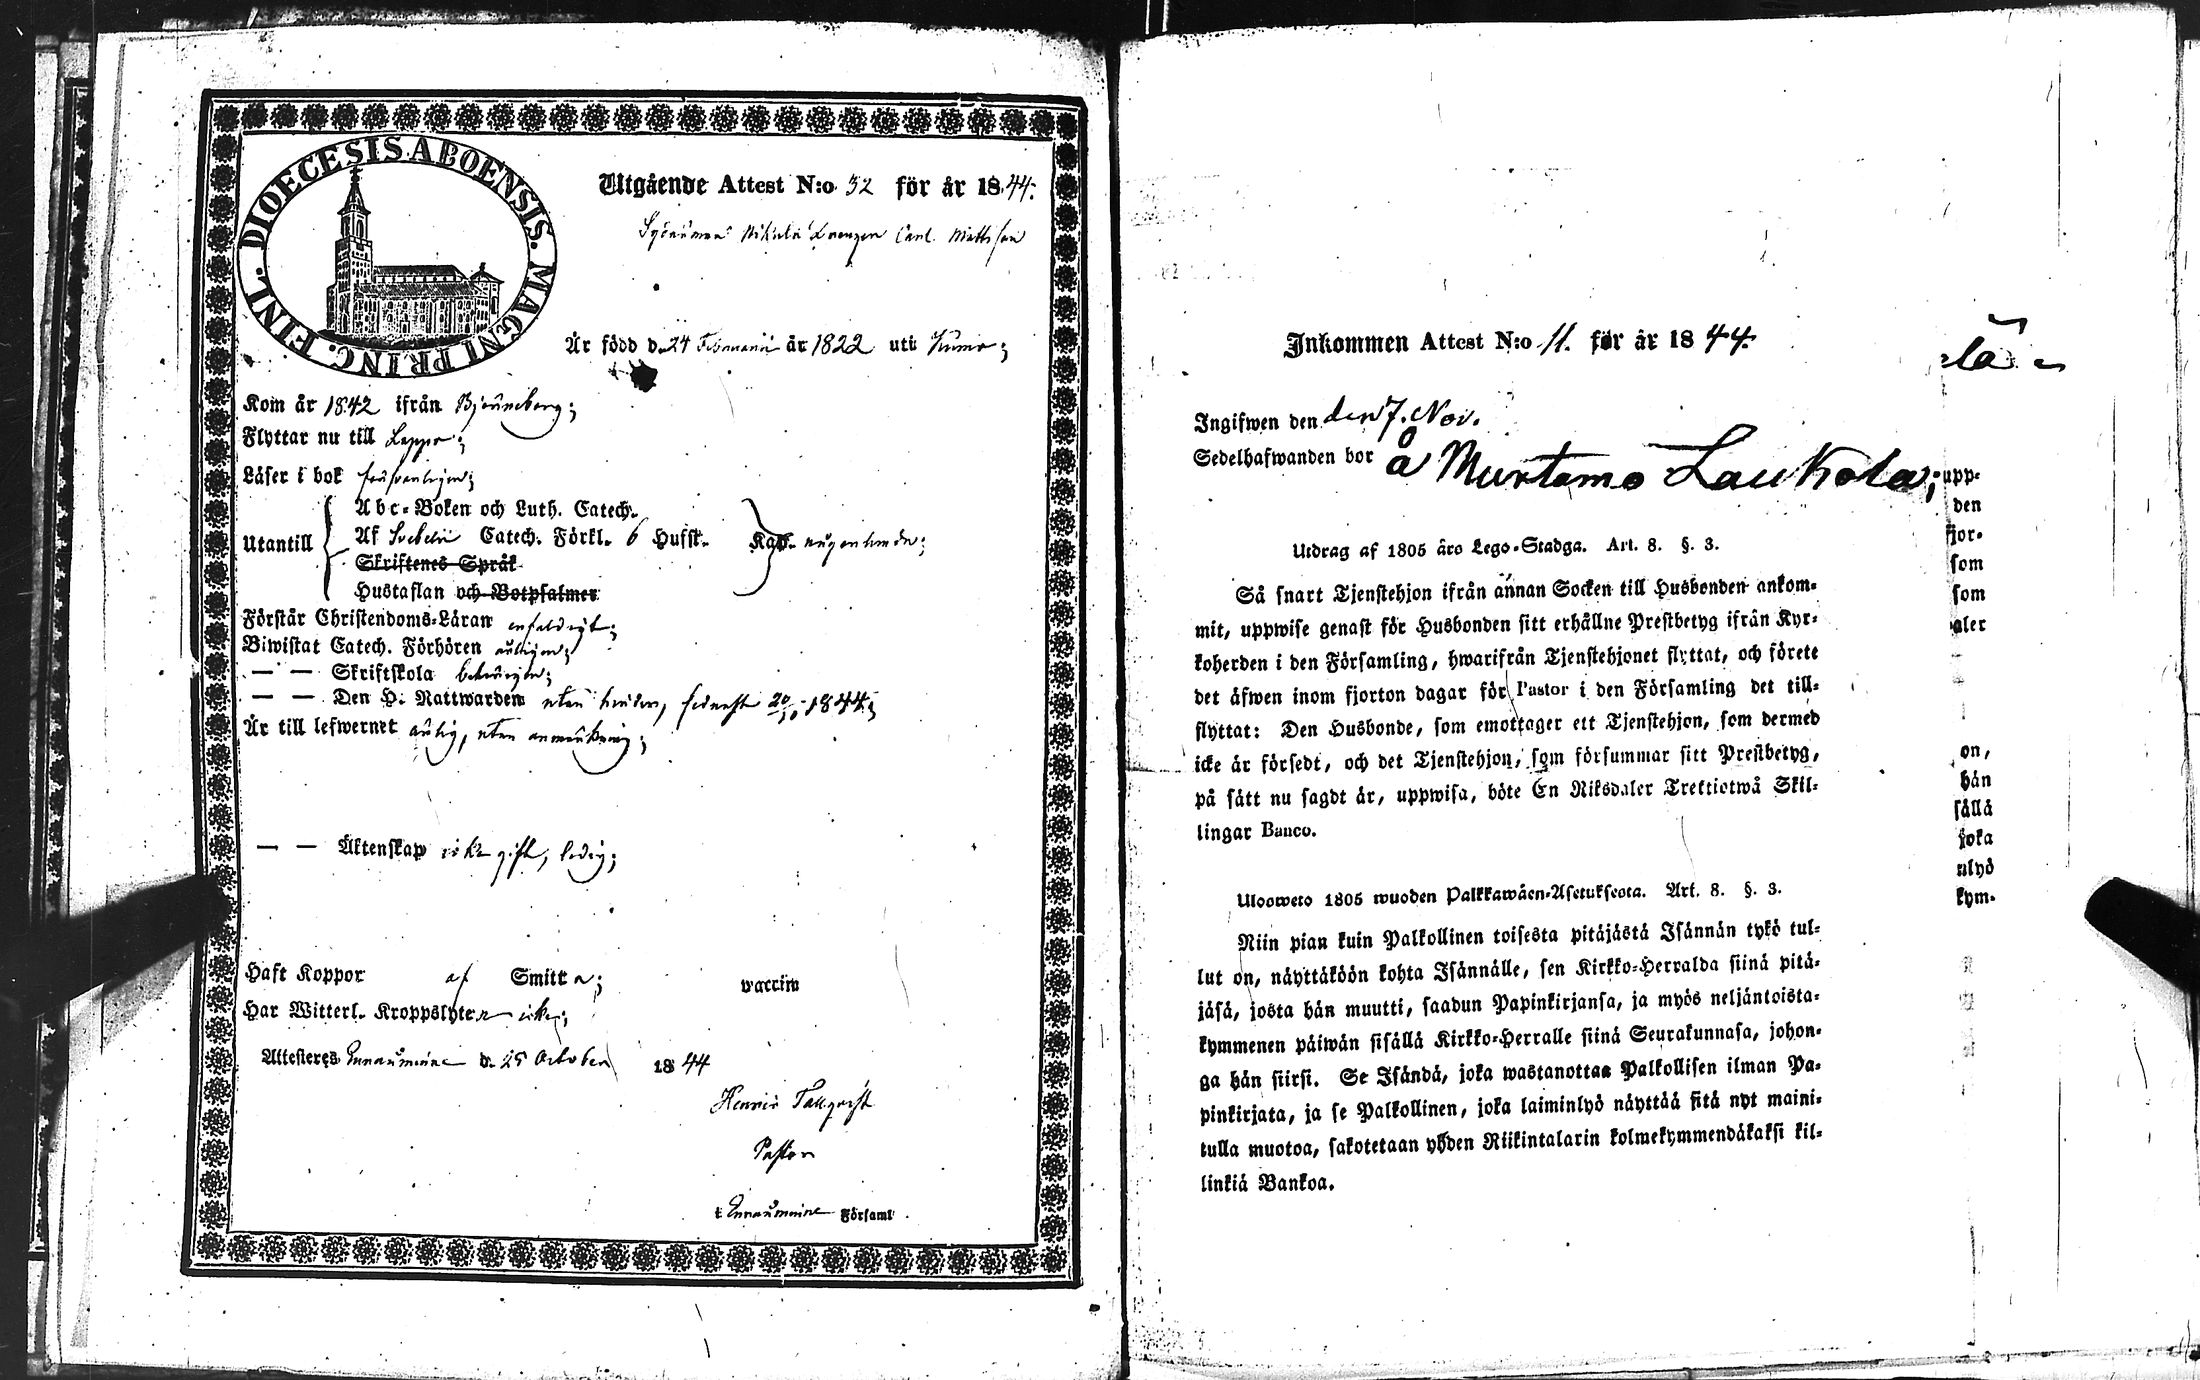 DIOECESIS ABOENSIS. MAGNI PRINC. FINL.
Utgående Attest N:o 52 för år 1844.
Nikula Carl Mattsson
Är född d. 24 Februarii år 1822 uti Kumo;
Kom år 1842 ifrån Björneborg;
Flyttar nu till Lappo;
Läser i bok försvarligen;
Utantill
Abc-Boken och Luth. Catech.
Af Svebelii Catech. Förkl. 6 Hufst. Kap. någorlunda;
Skriftenes Språk
Hustaflan och Botpsalmer
Förstår Christendoms-Läran enfaldigt;
Biwistat Catech. Förhören ärligen;
— — Skriftskola behörigen;
— — Den H. Nattwarden utan hinder, sednast 20/10 1844;
Är till lefwernet ärlig, utan anmärkning;
— — Äktenskap icke gift, ledig;
Haft Koppor af Smitta; waccin
Har Witterl. Kroppslyten icke;
Attesteres Euraåminne d. 25 October 1844
Henric Tallqvist
Pastor
i Euraåminne Församl.
Inkommen Attest N:o 11. för år 1844.
Ingifwen den den 7. Nov.
Sedelhafwanden bor å Murtamo Laukola;
Utdrag af 1805 års Lego-Stadga. Art. 8. §. 3.
Så snart Tjenstehjon ifrån annan Socken till Husbonden ankom-
mit, uppwise genast för Husbonden sitt erhållne Prestbetyg ifrån Kyr-
koherden i den Församling, hwarifrån Tjenstehjonet flyttat, och förete
det äfwen inom fjorton dagar för Pastor i den Församling det till-
flyttat: Den Husbonde, som emottager ett Tjenstehjon, som dermed
icke är försedt, och det Tjenstehjon, som försummar sitt Prestbetyg,
på sätt nu sagdt är, uppwisa, böte En Riksdaler Trettiotwå Skil-
lingar Banco.
Ulosweto 1805 wuoden Palkkawäen-Asetuksesta. Art. 8. §. 3.
Niin pian kuin Palkollinen toisesta pitäjästä Isännän tykö tul-
lut on, näyttäköön kohta Isännälle, sen Kirkko-Herralda siinä pitä-
jäsä, josta hän muutti, saadun Papinkirjansa, ja myös neljäntoista-
kymmenen päiwän sisällä Kirkko-Herralle siinä Seurakunnasa, johon-
ga hän siirsi. Se Isändä, joka wastanottaa Palkollisen ilman Pa-
pinkirjata, ja se Palkollinen, joka laiminlyö näyttää sitä nyt maini-
tulla muotoa, sakotetaan yhden Riikintalarin kolmekymmendäkaksi kil-
linkiä Bankoa.
lä
upp-
den
fjor-
som
som
aler
on,
hän
sällä
joka
nlyö
kym-